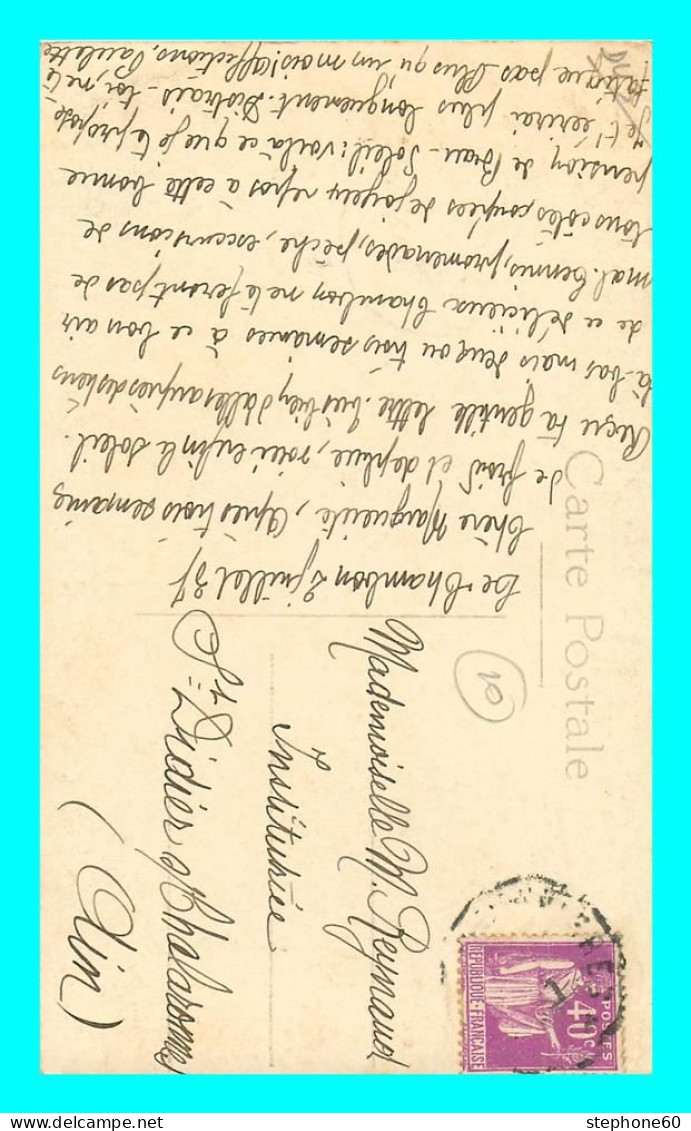 Carte Postale
Le Chambon 2 juillet 37
Chère Marguerite, Après trois semaines
de froid et de pluie, voici enfin le soleil.
Reçu ta gentille lettre. Très bien d'aller auprès des tiens
là-bas mais deux ou trois semaines à ce bon air
de ce délicieux Chambon ne te feront pas de
mal. Tennis, promenades, pêche, excursions de
tous côtés, coupées de joyeux repos à cette bonne
pension de Beau-Soleil : voilà ce que je te propose
Je t'écrirai plus longuement. Distrais-toi, ne te
fatigue pas. Plus qu'un mois ! Affections. Paulette
10
Mademoiselle M. Reynaud
Institutrice
St Didier s/ Chalaronne
(Ain)
POSTES
40 c.
REPUBLIQUE FRANÇAISE
stephone60